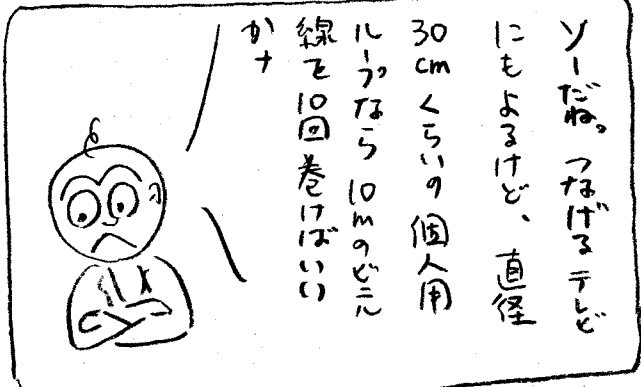 ソーだね。つなげるテレビ
にもよるけど、直径
30cmくらいの個人用
ループなら10mのビニル
線を10回巻けばいい
かナ